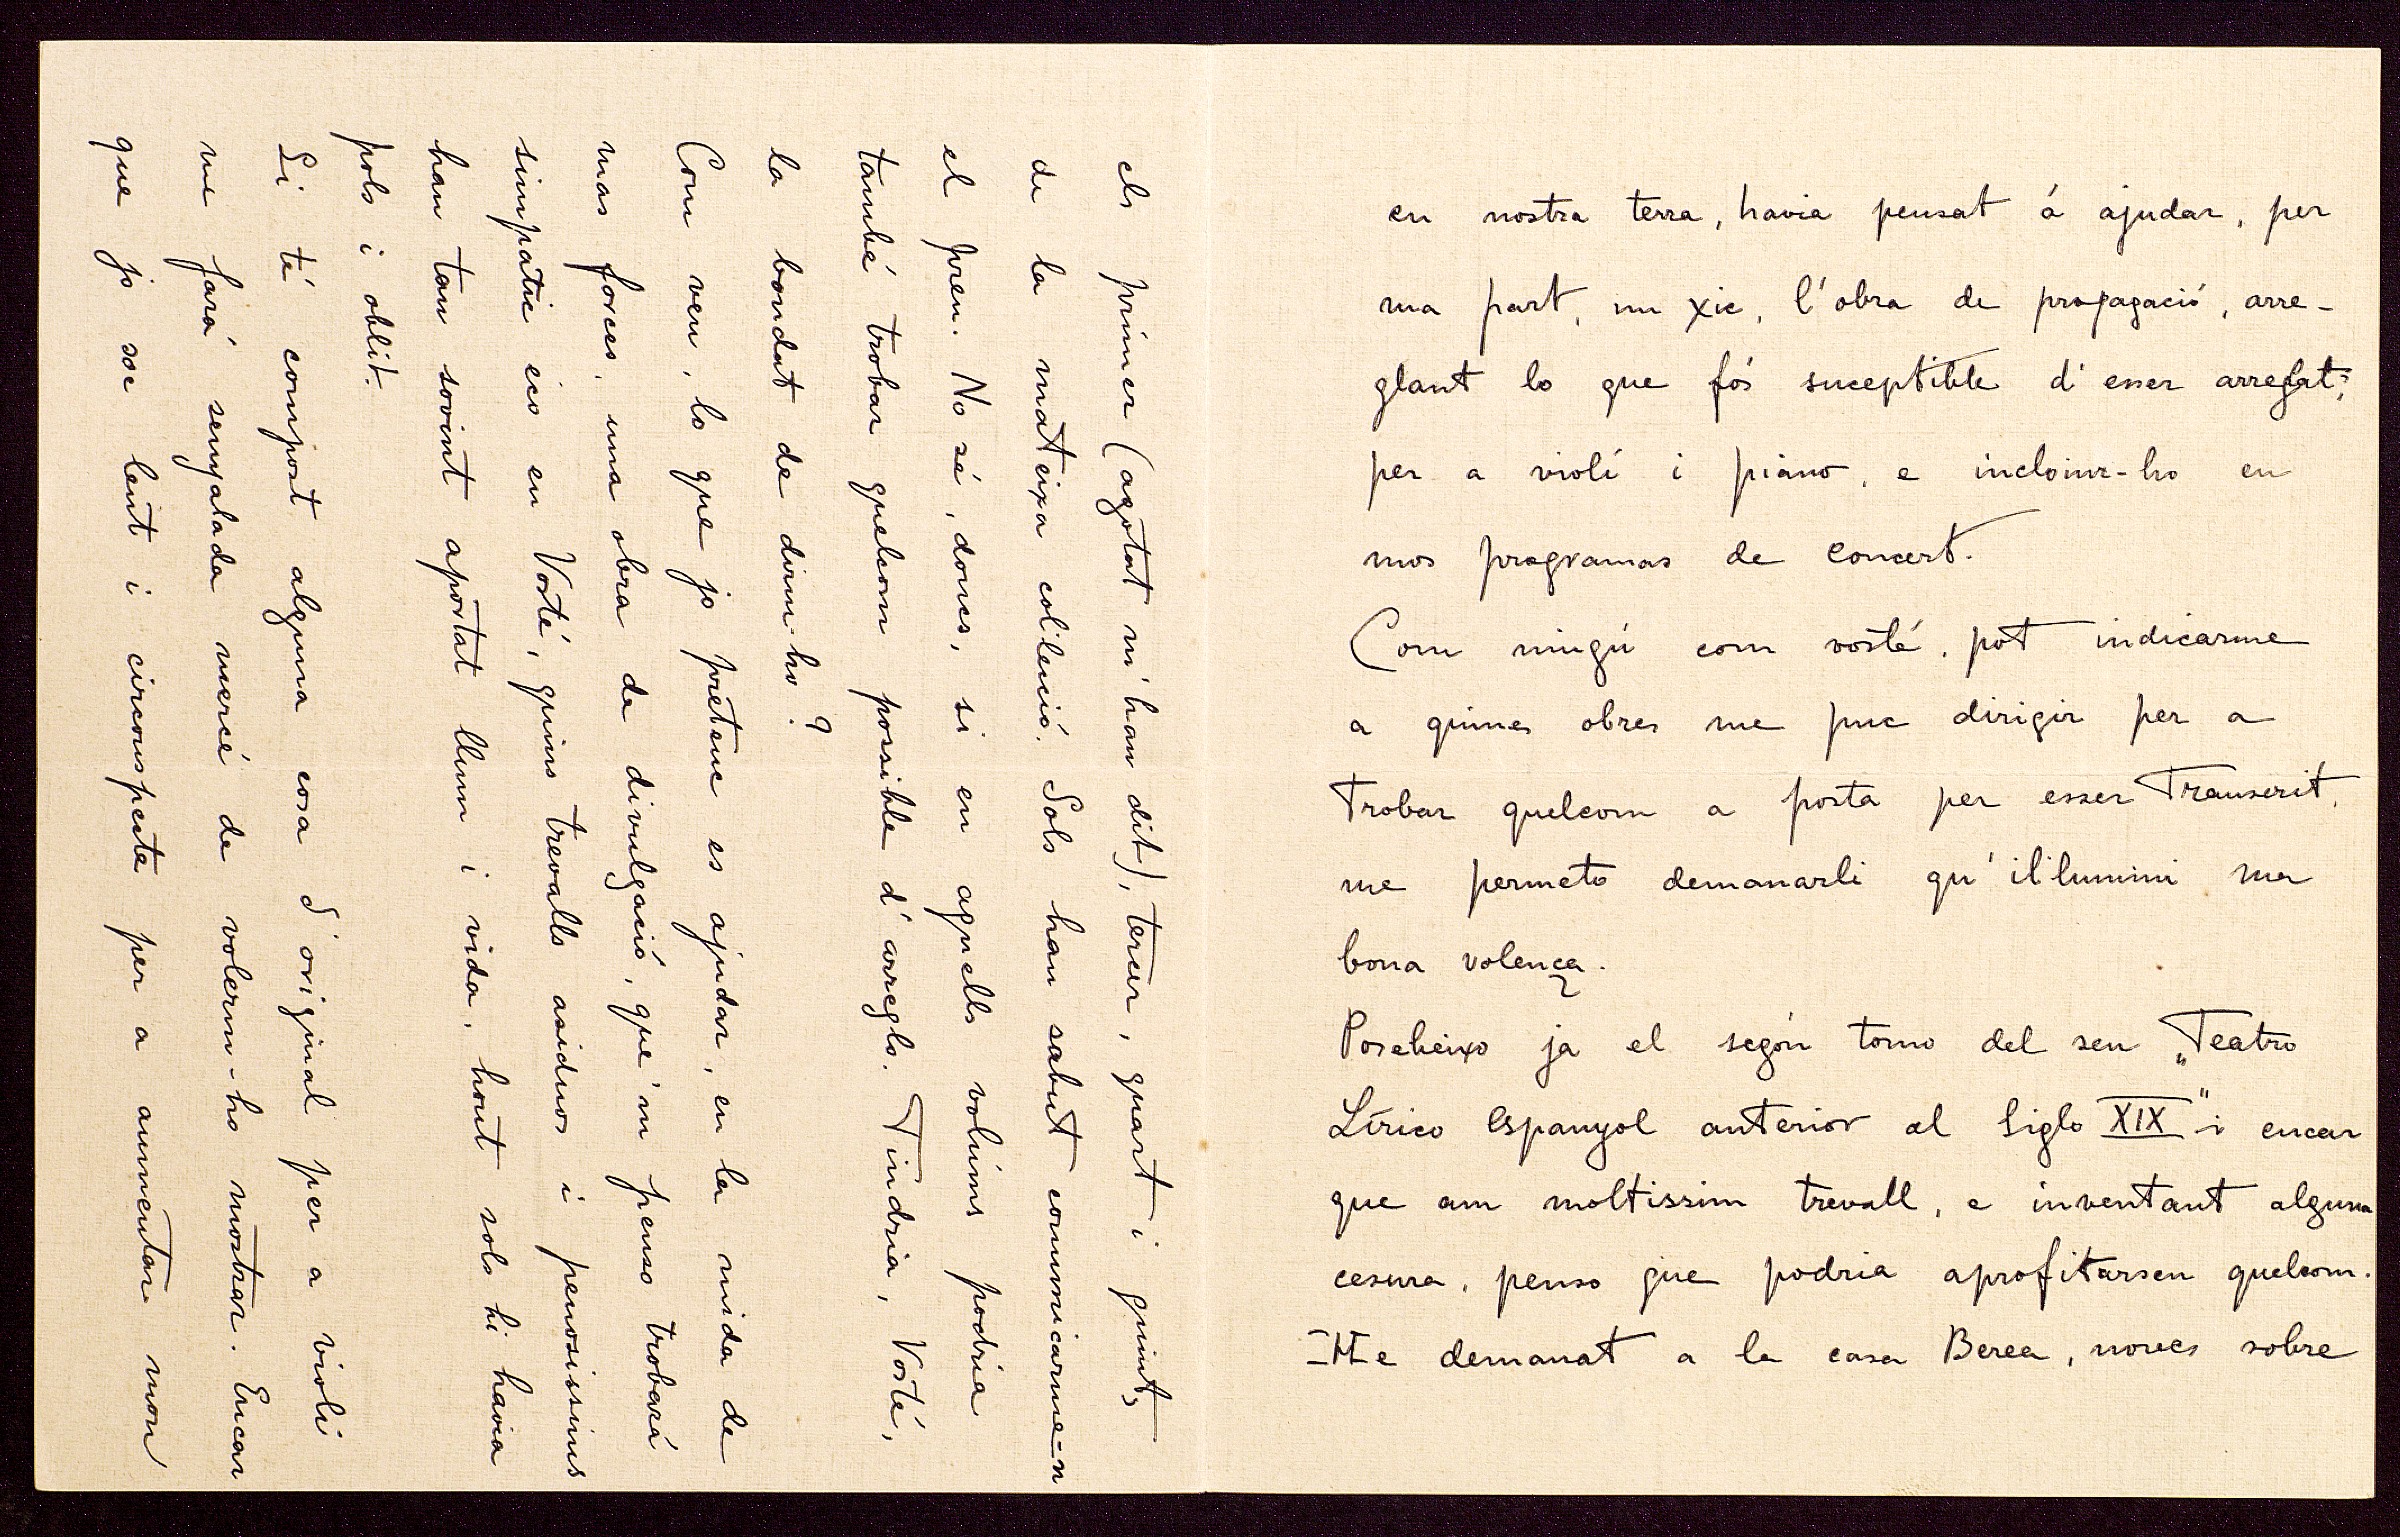 en nostra terra, havia pensat á ajudar, per
ma part, un xic, l'obra de propagació, arre-
glant lo que fós suceptible d'esser arreglat,
per a violí i piano, e incloiure-ho en
mos programas de concert.
Com ningú com vosté, pot indicarme
a quines obres me puc dirigir per a
trobar quelcom a posta per esser transcrit,
me permeto demanarli qu'il'lumini ma
bona volença.
Poseheixo ja el segón tomo del seu „Teatro
Lírico Espanyol anterior al Siglo XIX" i encar
que am moltissim trevall, e inventant alguna
cesura, penso que podria aprofitarsen quelcom.
He demanat a la casa Berea, noves sobre
els primer (agotat m'han dit), tercer, quart i quint,
de la mateixa col'lecció. Sols han sabut comunicarme-n
el preu. No sé, doncs, si en aquells volúms podria
també trobar quelcom possible d'arreglo. Tindria, Vosté,
la bondat de dirm-ho?
Com veu, lo que jo pretenc es ajudar, en la mida de
mas forces, una obra de divulgació, que'm penso trobará
simpatic eco en Vosté, quins trevalls asiduos i penosissims
han tan sovint aportat llum i vida, hont sols hi havia
pols i oblit.
Si té compost alguna cosa d'original per a violí
me fará senyalada mercé de volerm-ho mostrar. Encar
que jo soc lent i circonspecte per a aumentar mon